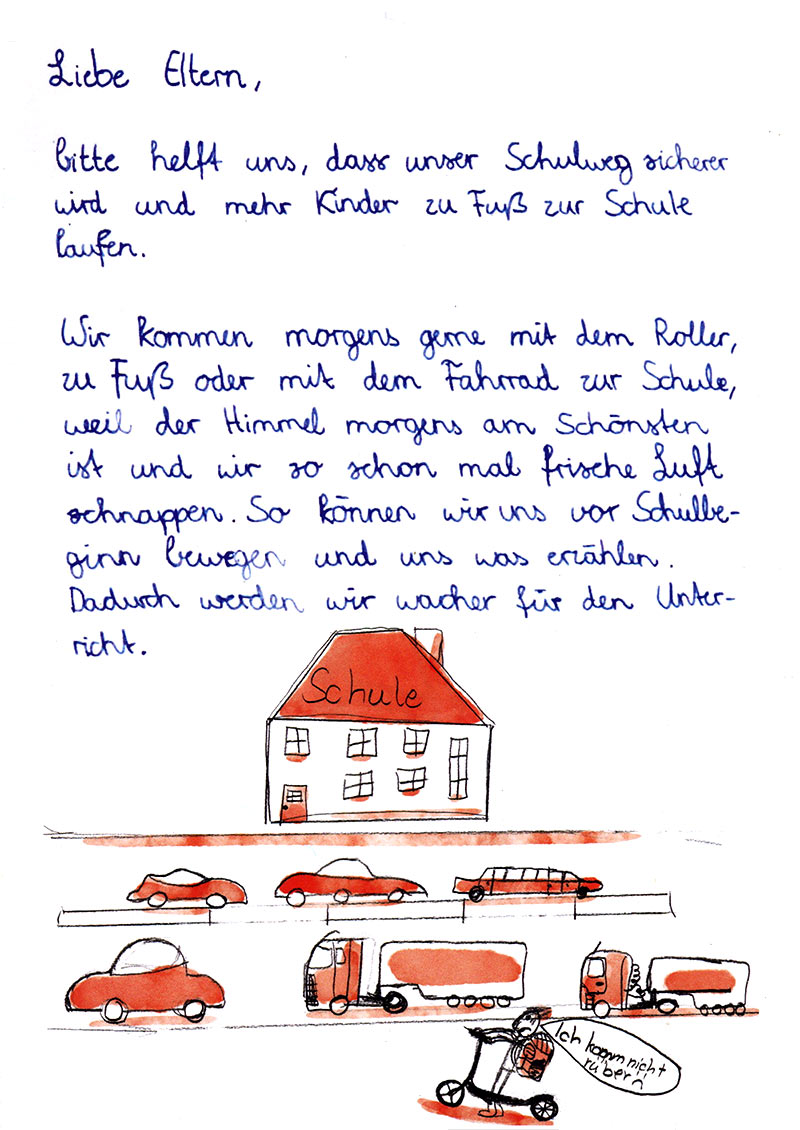 Liebe Eltern,
bitte helft uns, dass unser Schulweg sicherer
wird und mehr Kinder zu Fuß zur Schule
laufen.
Wir kommen morgens gerne mit dem Roller,
zu Fuß oder mit dem Fahrrad zur Schule,
weil der Himmel morgens am Schönsten
ist und wir so schon mal frische Luft
schnappen. So können wir uns vor Schulbe-
ginn bewegen und uns was erzählen.
Dadurch werden wir wacher für den Unter-
richt.
Schule
Ich komm nicht
rüber!